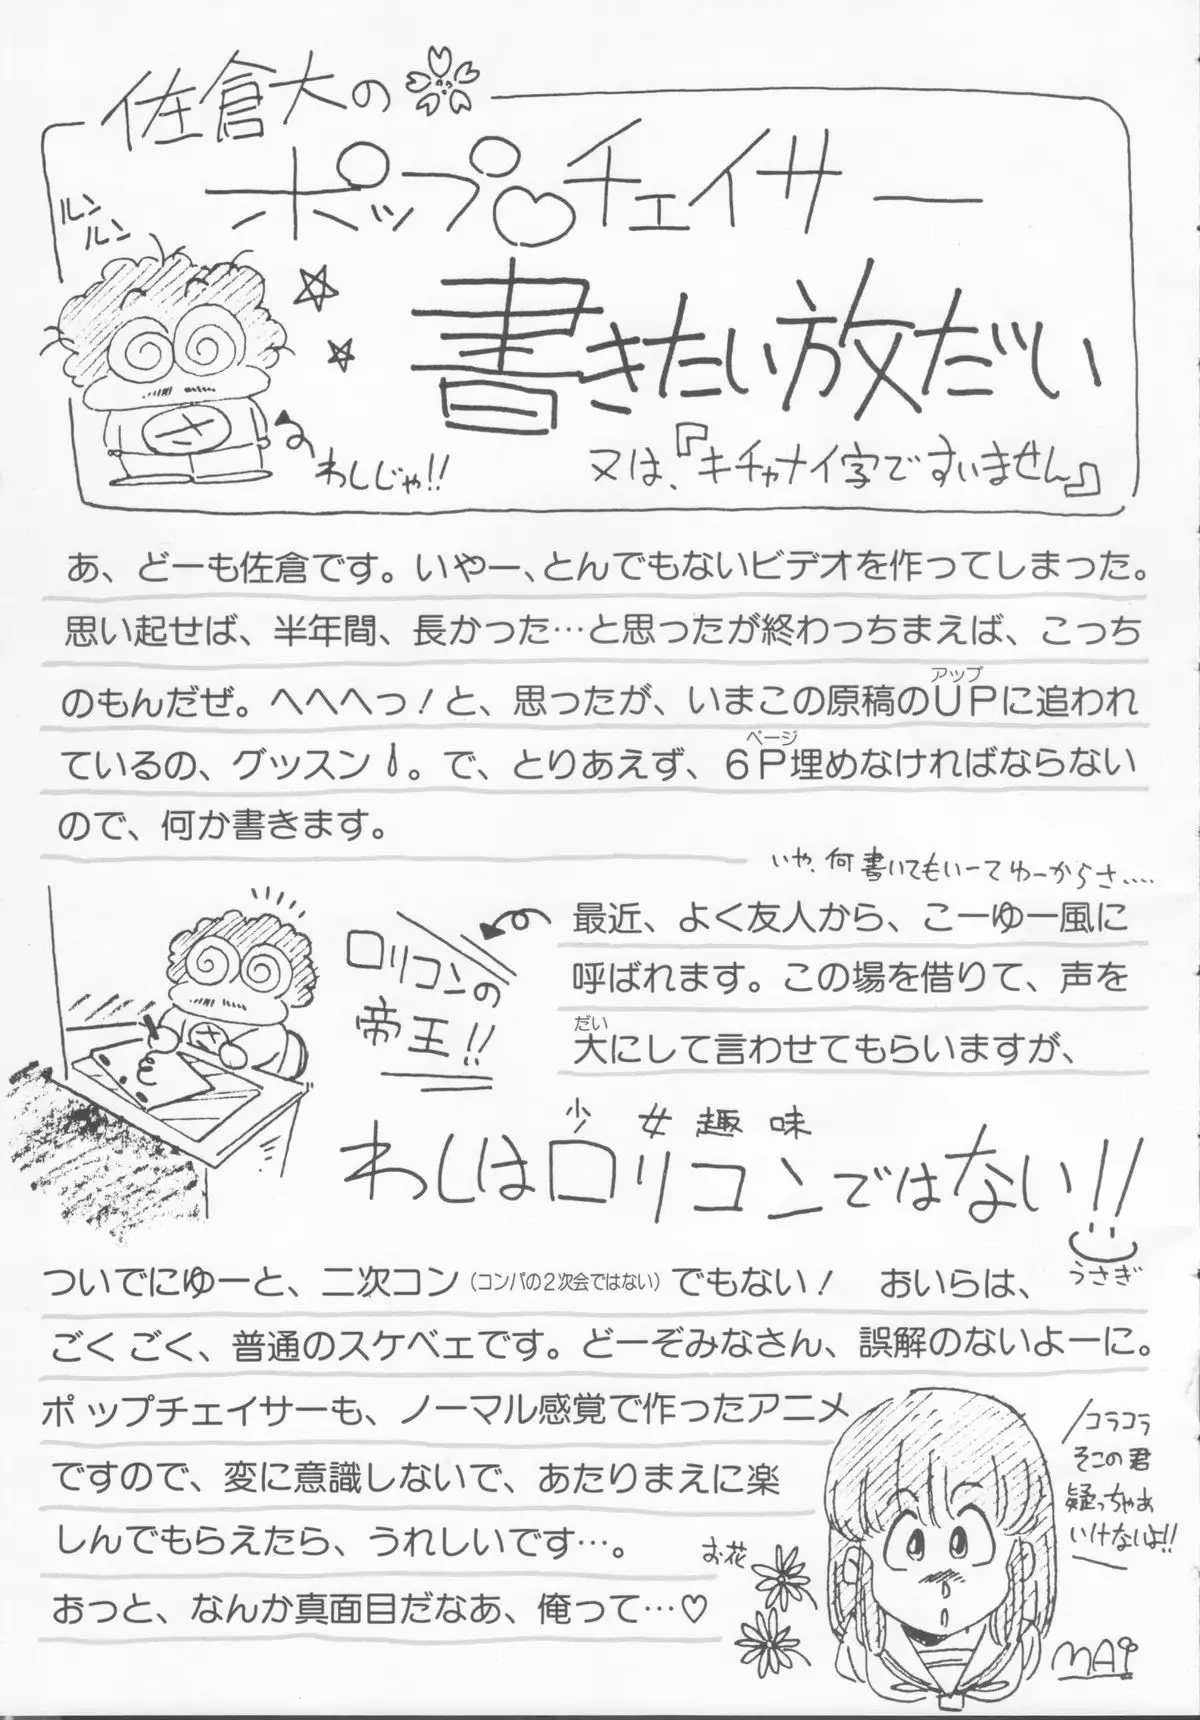 佐倉大の
ポップ♡チェイサー
書きたい放だい
又は、『キチャナイ字ですいません』
ルンルン
わしじゃ!!
あ、どーも佐倉です。いやー、とんでもないビデオを作ってしまった。
思い起せば、半年間、長かった…と思ったが終わっちまえば、こっち
アップ
のもんだぜ。へへへっ!と、思ったが、いまこの原稿のUPに追われ
ページ
ているの、グッスン。で、とりあえず、6P埋めなければならない
ので、何か書きます。
いや、何書いてもいーてゆーからさ‥‥
ロリコンの
帝王!!
最近、よく友人から、こーゆー風に
呼ばれます。この場を借りて、声を
だい
大にして言わせてもらいますが、
少女趣味
わしはロリコンではない!!
うさぎ
ついでにゆーと、二次コン(コンパの2次会ではない)でもない! おいらは、
ごくごく、普通のスケベェです。どーぞみなさん、誤解のないよーに。
ポップチェイサーも、ノーマル感覚で作ったアニメ
ですので、変に意識しないで、あたりまえに楽
しんでもらえたら、うれしいです…。
おっと、なんか真面目だなあ、俺って…♡
お花
コラコラ
そこの君
疑っちゃあ
いけないよ!!
MAI